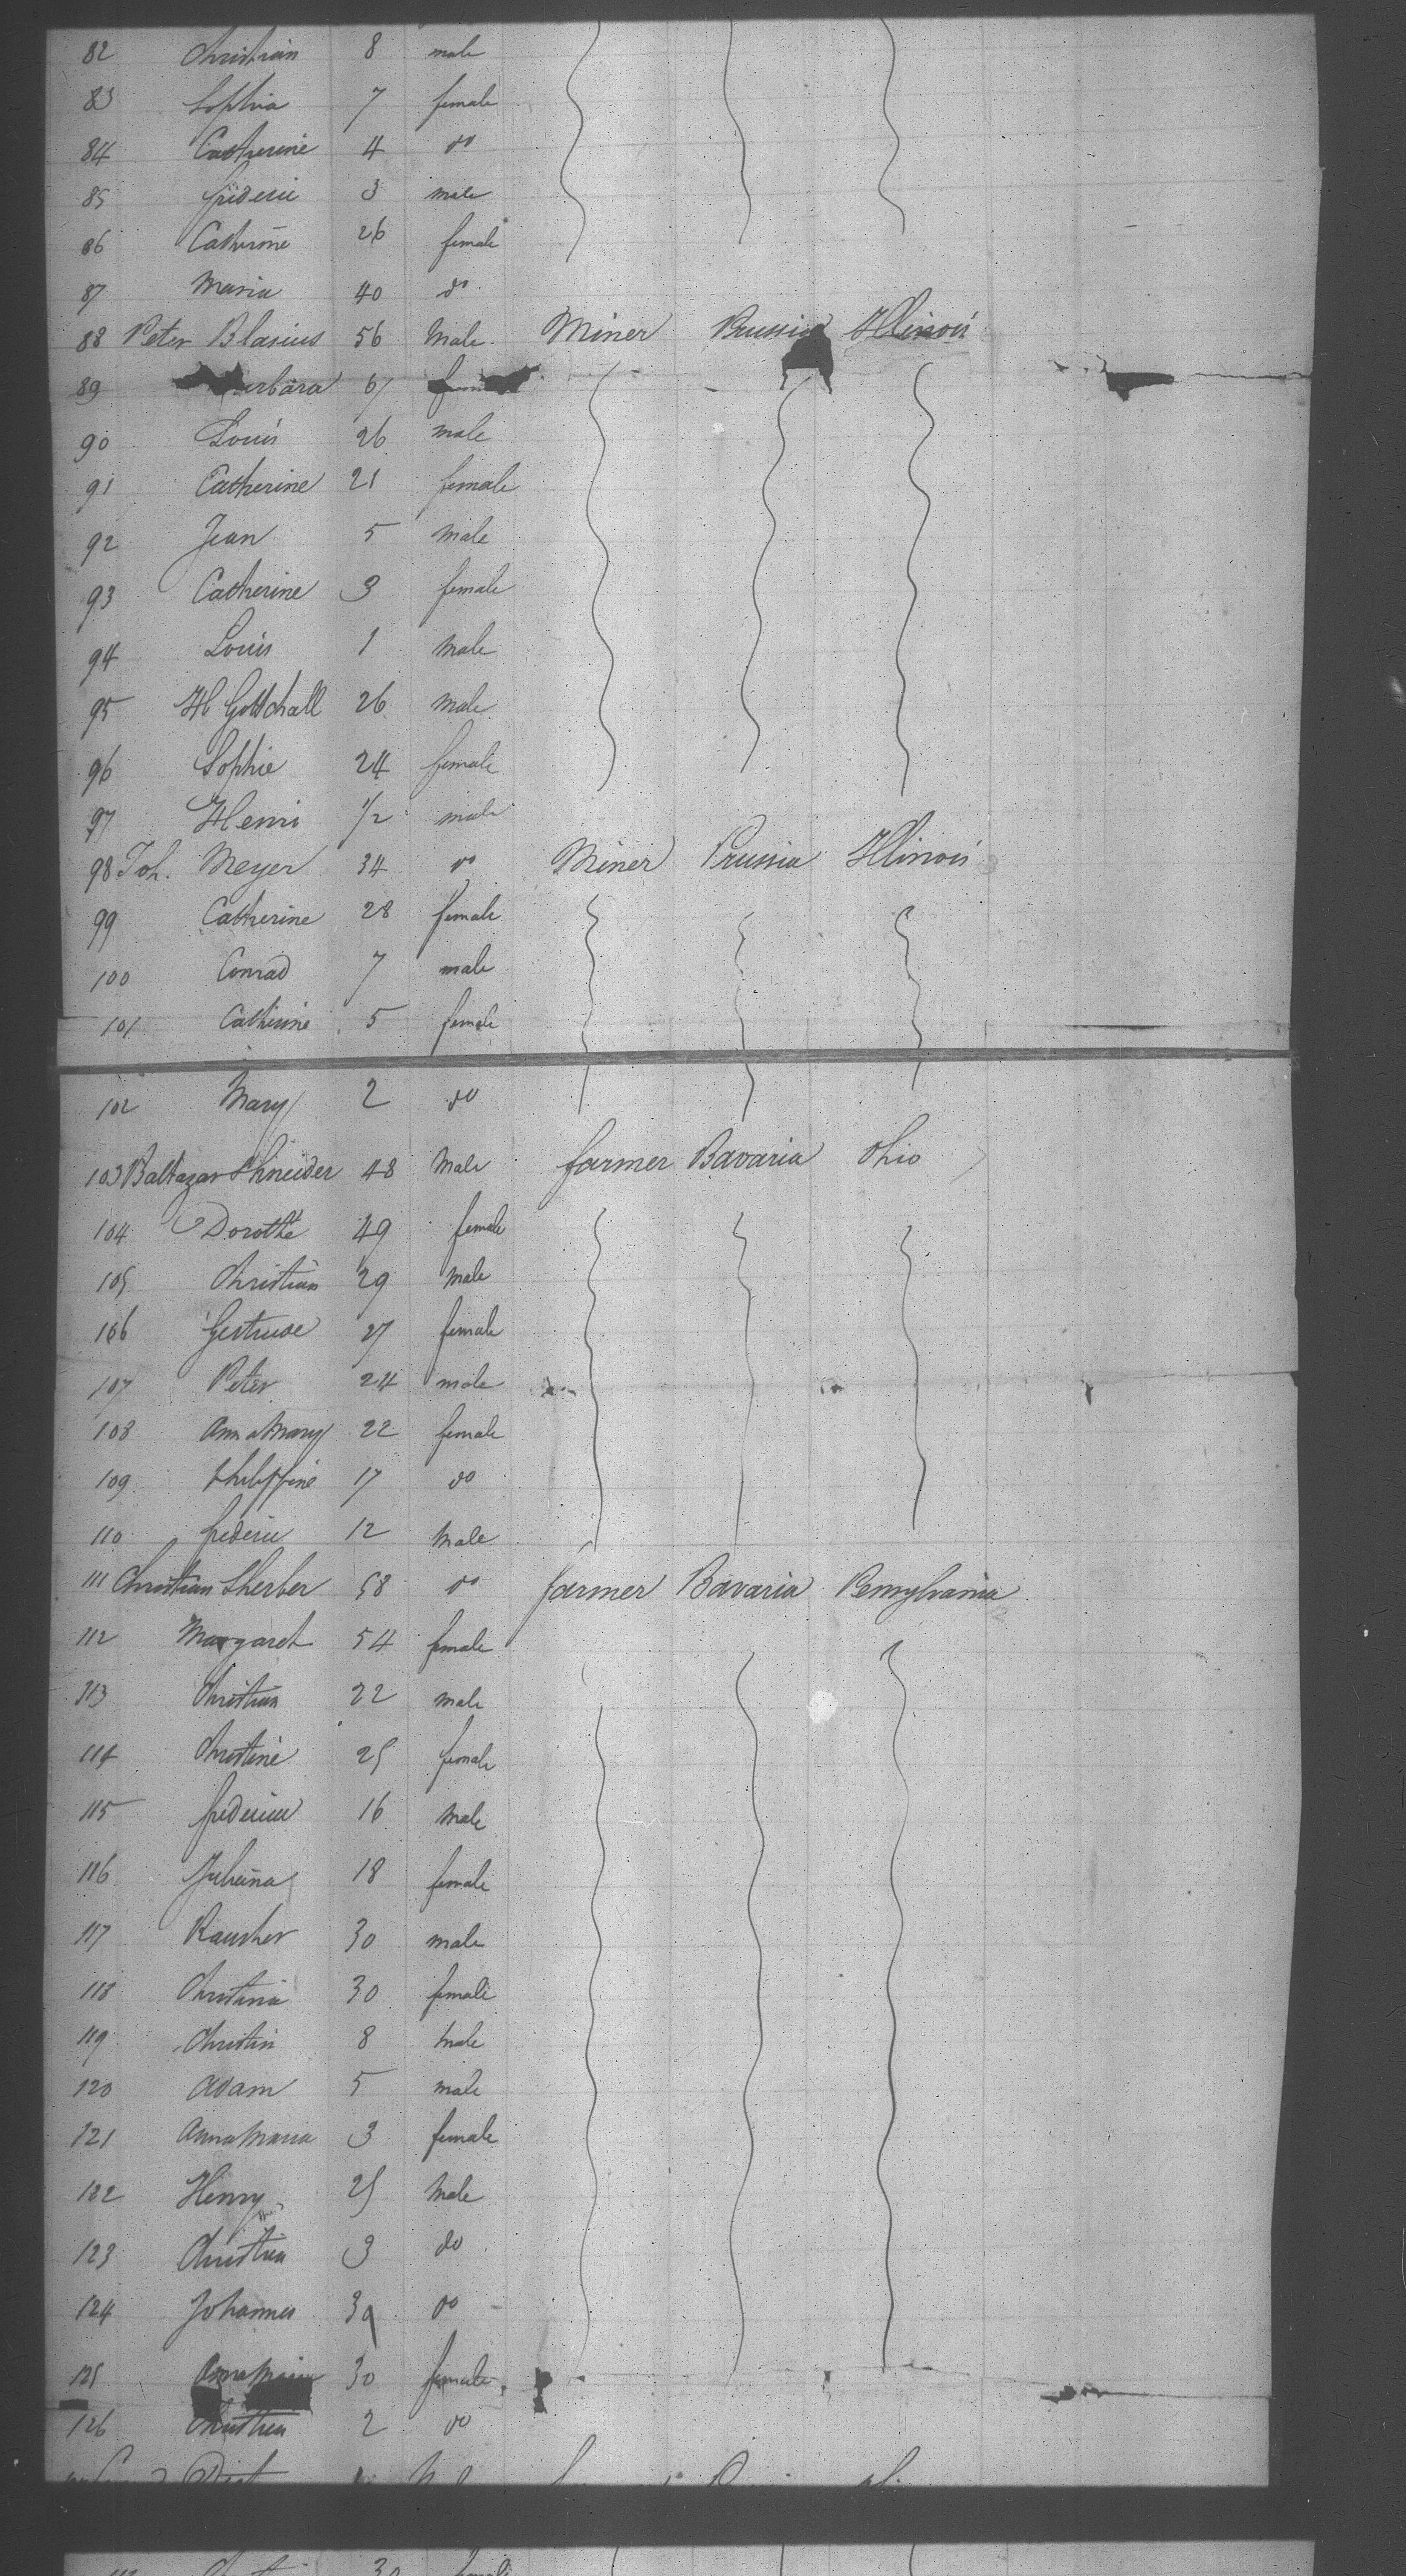 82 Christian 8 male
83 Sophia 7 female
84 Catherine 4 do
85 frederic 3 male
86 Catherine 26 female
87 Maria 40 do
88 Peter Blasius 56 Male. Miner Prussia Illinois
89 erbara 61
90 Louis 26 male
91 Catherine 21 female
92 Jean 5 male
93 Catherine 3 female
94 Louis 1 male
95 H Gottschall 26 male
96 Sophie 24 female
97 Henri 1/2 male
98 Joh. Meyer 34 do Miner Prussia Illinois
99 Catherine 28 female
100 Conrad 7 male
101 Catherine 5 female
102 Mary 2 do
103 Baltazar Shneider 48 Male farmer Bavaria Ohio
104 Dorothe 49 female
105 Christian 29 male
106 Gertrude 27 female
107 Peter 24 male
108 Anna Mary 22 female
109 Philippine 17 do
110 frederic 12 Male
111 Christian Sherber 58 do farmer Bavaria Pensylvania
112 Margaret 54 female
113 Christian 22 male
114 Christine 25 female
115 frederic 16 Male
116 Juliana 18 female
117 Rausher 30 male
118 Christina 30 female
119 Christin 8 Male
120 Adam 5 male
121 Anna Maria 3 female
122 Henry 25 Male
123 Christian 3 do
124 Johannes 39 do
125 Anna Maria 30 female
126 Christian 2 do